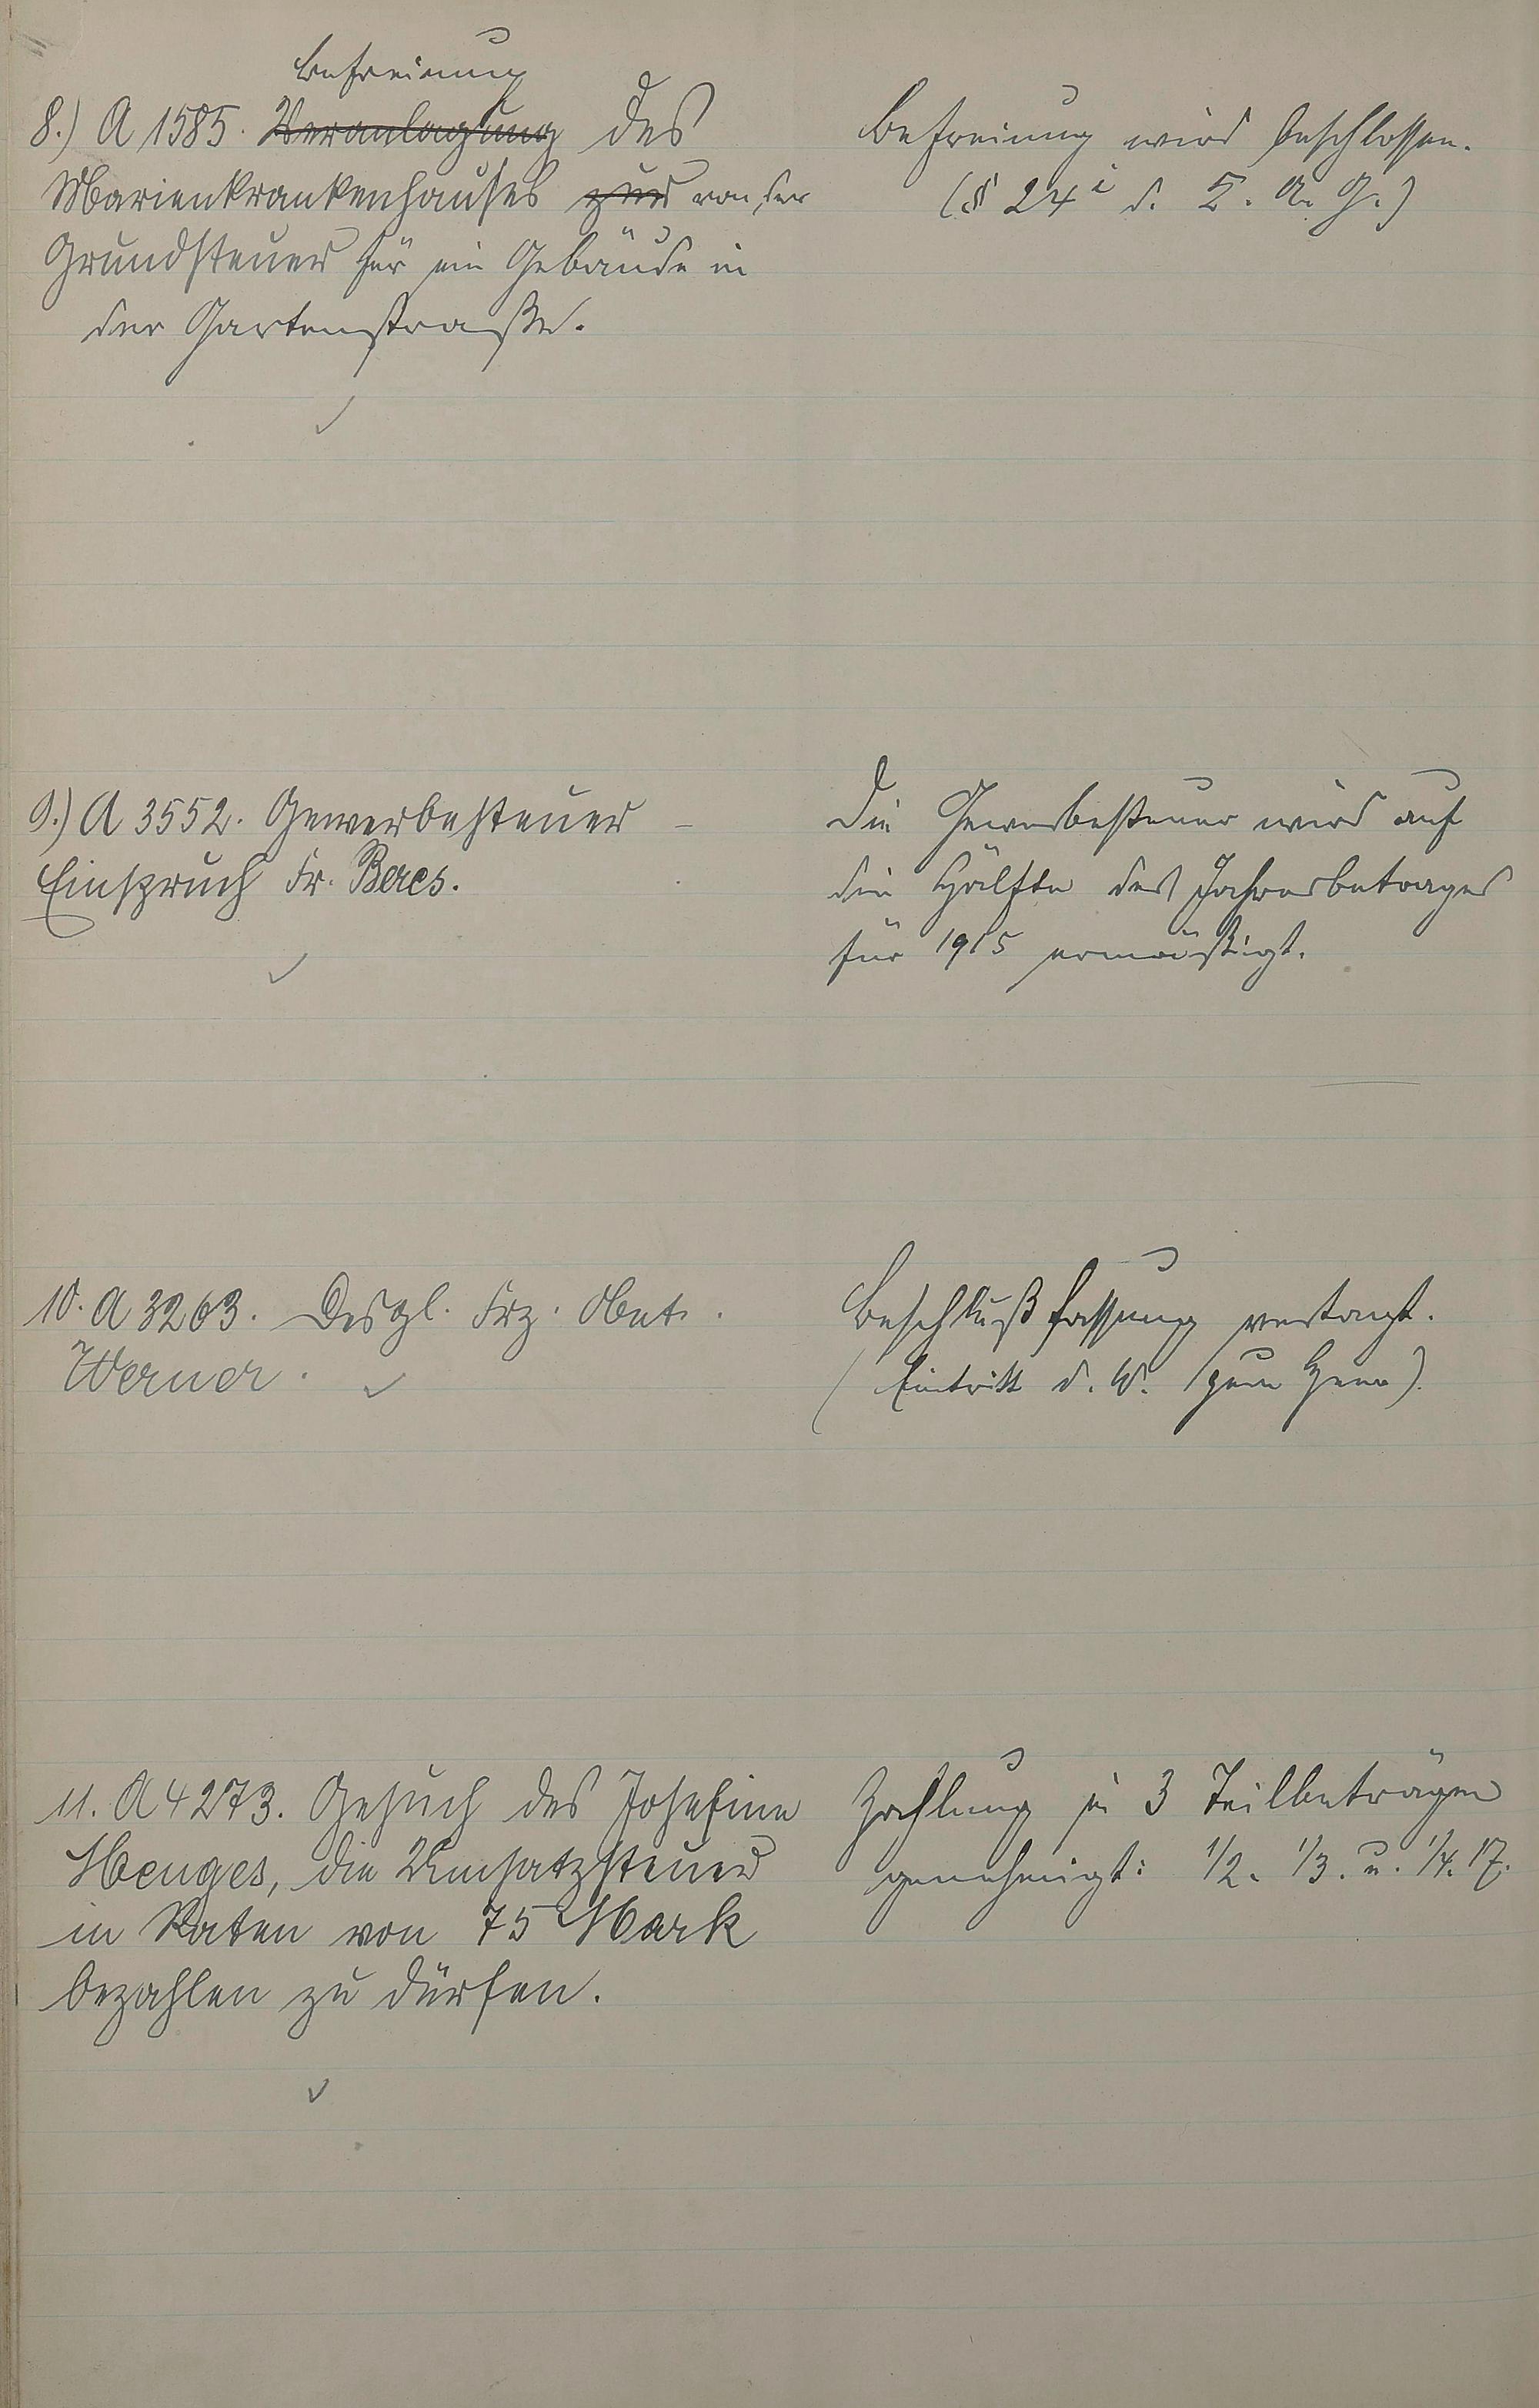 Befreiung
8.) A 1585. Veranlagung des
Marienkrankenhauses zur von der
Grundsteuer für ein Gebäude in
der Gartenstraße.
Befreiung wird beschlossen.
(§ 24 i d. K. A. G.)
9.) A 3552. Gewerbesteuer –
Einspruch Fr. Beres.
Die Gewerbesteuer wird auf
die Hälfte des Jahresbetrages
für 1915 ermäßigt.
10. A 3263. Desgl. Frz.
Werner.
Beschlußfassung vertagt.
(Eintritt d. W. zum Heer).
11. A 4273. Gesuch der Josefine
Henges, die Umsatzsteuer
in Raten von 75 Mark
bezahlen zu dürfen.
Zahlung in 3 Teilbeträgen
genehmigt: 1/2. 1/3. u. 1/4. 17.